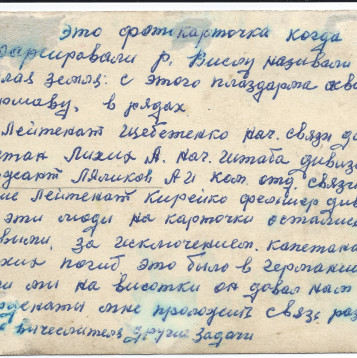 это фото карточка когда
форсировали р. Вислу называли
лая земля. с этого плаздарма
в рядах
Лейтенат Щебетенко нач. связи
Лихих А. нач. штаба дивиз
Лямихов А И ком. отд. связи
Лейтенат Кирейко
эти люди на карточки остались
выми, за исключением. капетана
хих погиб это было в германии
ми на высотки он довал нам
мне проложит связь раз
вичеслителя другие задачи